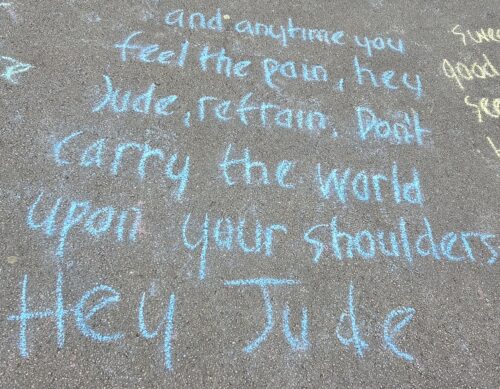 and anytime you
feel the pain, hey
Jude, refrain. Don't
carry the world
upon your shoulders
Hey Jude
good